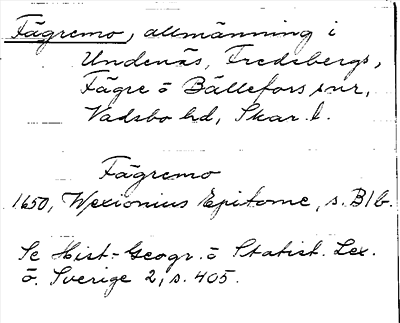 Fägremo, allmänning i
Undenäs, Fredsbergs,
Fägre o Bällefors snr,
Vadsbo hd, Skar. l.
Fägremo
1650, Wexionius Epitome, s. B1b.
Se Hist.-Geogr. o Statist. Lex.
ö. Sverige 2, s. 405.